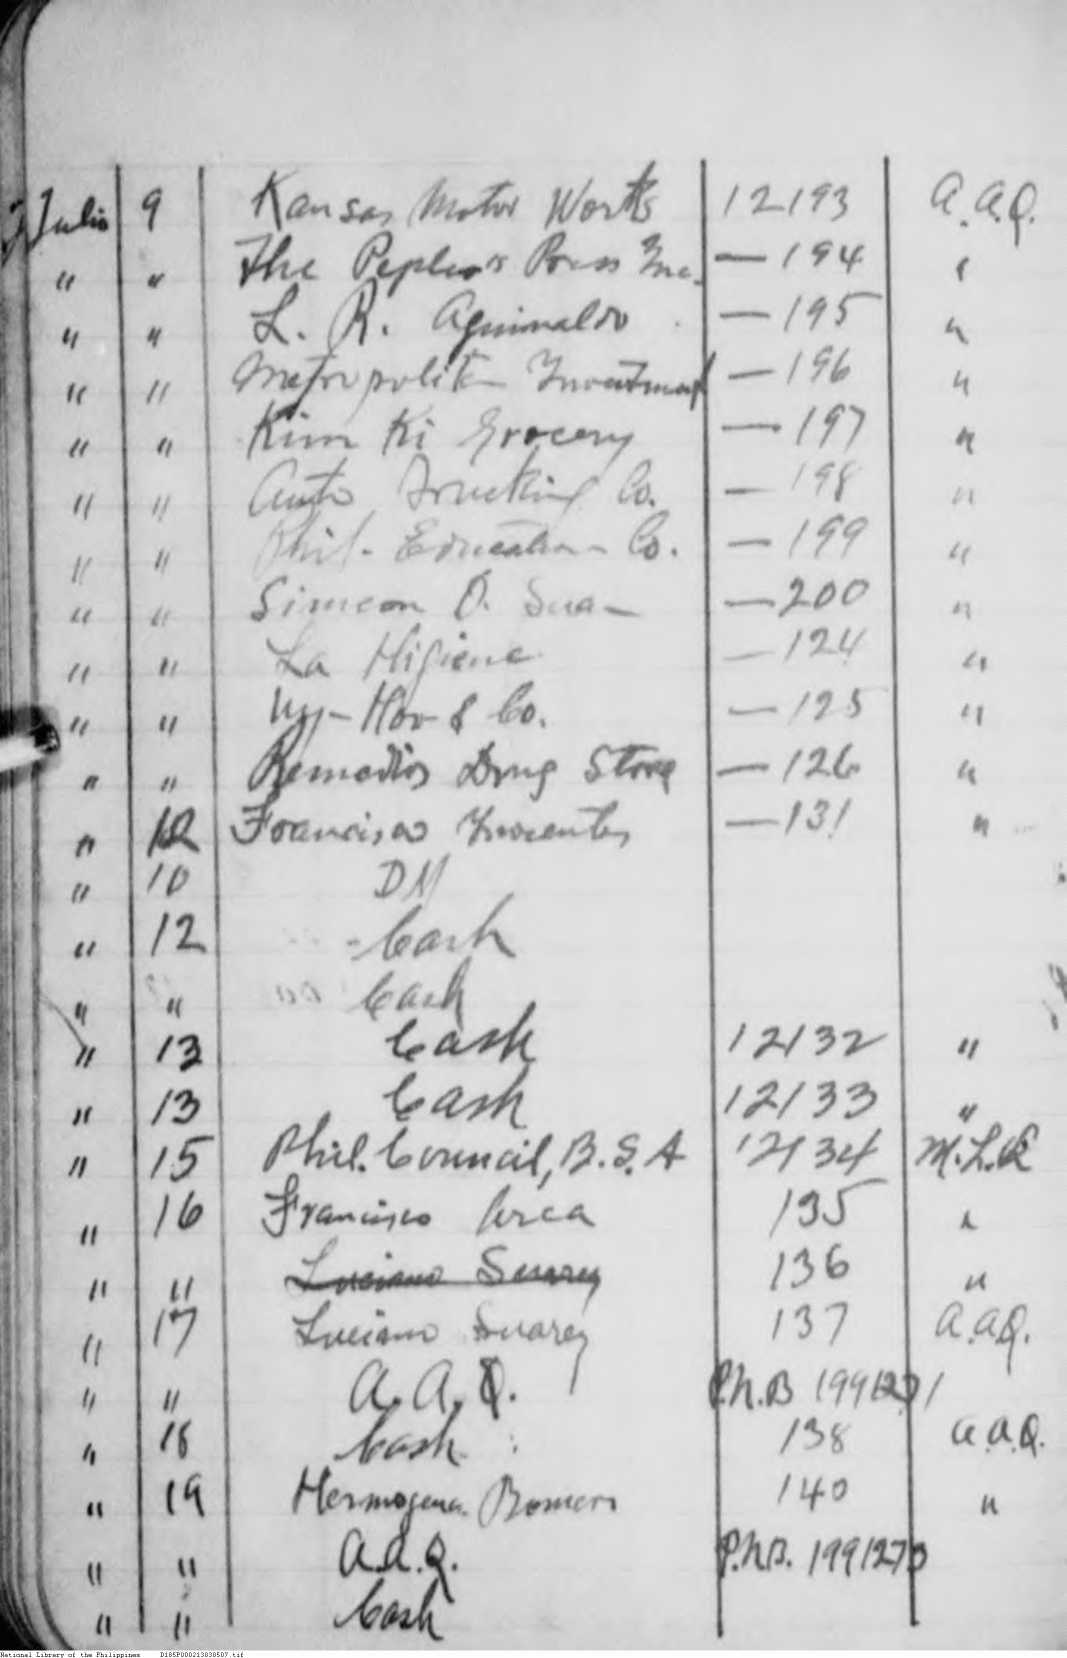 Julio 9 Kansas Motor Works 12193 A.A.Q.
" " The Peples Press Inc. — 194 "
" " L. R. Aguinaldo — 195 "
" " Metropolitan Investment — 196 "
" " Kim Ki Grocery — 197 "
" " Auto Trucking Co. — 198 "
" " Phil. Education Co. — 199 "
" " Simeon O. — 200 "
" " La Higiene — 124 "
" " Uy-Hoo & Co. — 125 "
" " Remedios Drug Store — 126 "
" 12 Francisco Inocentes — 131 "
" 10 DM
" 12 Cash
" " Cash
" 13 Cash 12132 "
" 13 Cash 12133 "
" 15 Phil. Council, B.S.A 12134 M.L.Q
" 16 Francisco 135 "
" " Luciano Suarez 136 "
" 17 Luciano Suarez 137 A.A.Q.
" " A. A. Q. P.N.B 1991271
" 18 Cash 138 A.A.Q.
" 19 Hermogena Romero 140 "
" " A.A.Q. P.N.B. 1991273
" " Cash
National Library of the Philippines D185P000213838507.tif